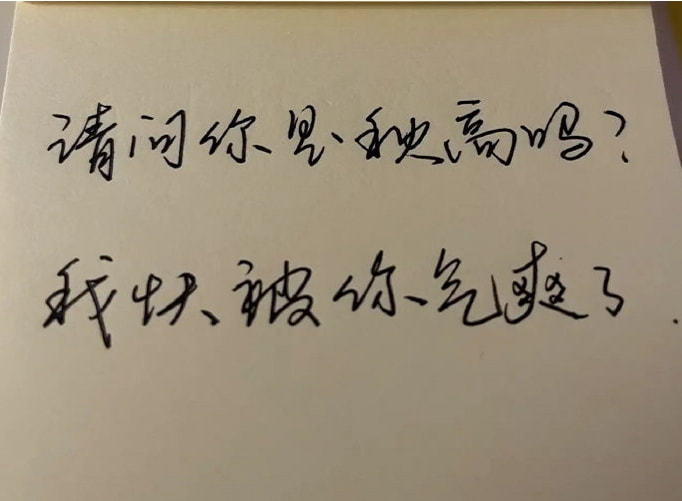 请问你是秧高吗?
我快被你气爽了.